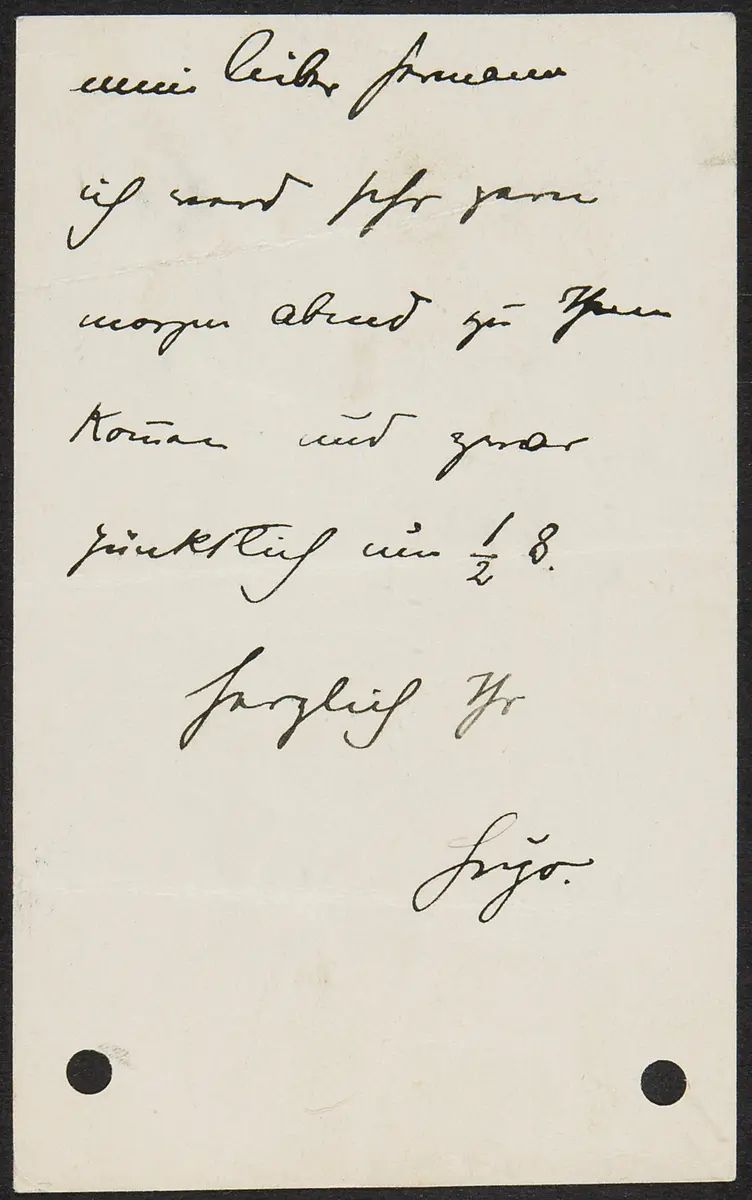 mein lieber Hermann
ich werd sehr gern
morgen abend zu Ihnen
Kom̄en und zwar
pünktlich um ½ 8.
herzlich Ihr
Hugo.